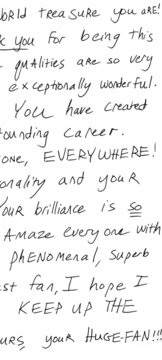 world treasure you are!
you for being this
qualities are so very
exceptionally wonderful.
You have created
career.
one, EVERYWHERE!
and your
your brilliance is so
Amaze everyone with
phenomenal, superb
fan, I hope I
KEEP UP THE
your HUGE-FAN!!!